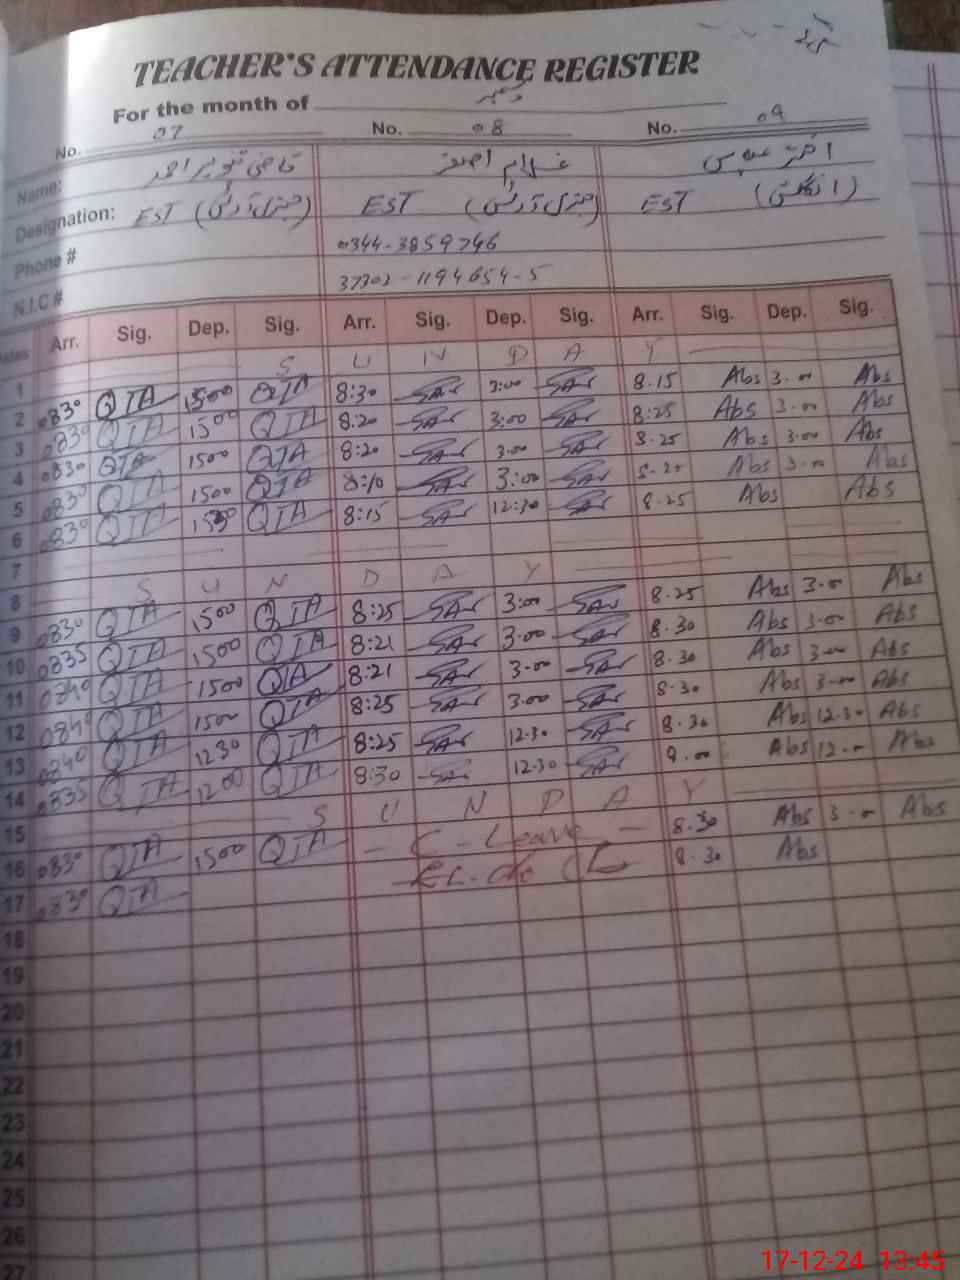 TEACHER'S ATTENDANCE REGISTER
For the month of دسمبر
No. 07 No. 08 No. 09
Name: قاضی تنویر احمد غلام اصغر اختر عباس
Designation: EST (جنرل آرٹس) EST (جنرل آرٹس) EST (انگلش)
Phone # 0344-3859746
N.I.C # 37302-1194654-5
Dates Arr. Sig. Dep. Sig. Arr. Sig. Dep. Sig. Arr. Sig. Dep. Sig.
1 S U N D A Y
2 0830 QTA 1500 QTA 8:30 3:00 8.15 Abs 3.00 Abs
3 0830 QTA 1500 QTA 8:20 3:00 8:25 Abs 3.00 Abs
4 0830 QTA 1500 QTA 8:20 3.00 8.25 Abs 3.00 Abs
5 0830 QTA 1500 QTA 8:10 3:00 8-25 Abs 3.00 Abs
6 0830 QTA QTA 8:15 12:30 8.25 Abs Abs
7
8 S U N D A Y
9 0830 QTA 1500 QTA 8:25 3:00 8.25 Abs 3.00 Abs
10 0835 QTA 1500 QTA 8:21 3.00 8.30 Abs 3.00 Abs
11 0840 QTA 1500 QTA 8:21 3.00 8.30 Abs 3.00 Abs
12 0840 QTA 1500 QTA 8:25 3.00 8.30 Abs 3.00 Abs
13 0840 QTA 1230 QTA 8:25 12.30 8.30 Abs 12.30 Abs
14 0835 QTA 1200 QTA 8:30 12.30 9.00 Abs 12.00 Abs
15 S U N D A Y
16 0830 QTA 1500 QTA - C - Leave - 8.30 Abs 3.00 Abs
17 0830 QTA 8.30 Abs
18
19
20
21
22
23
24
25
26
27
17-12-24 13:45